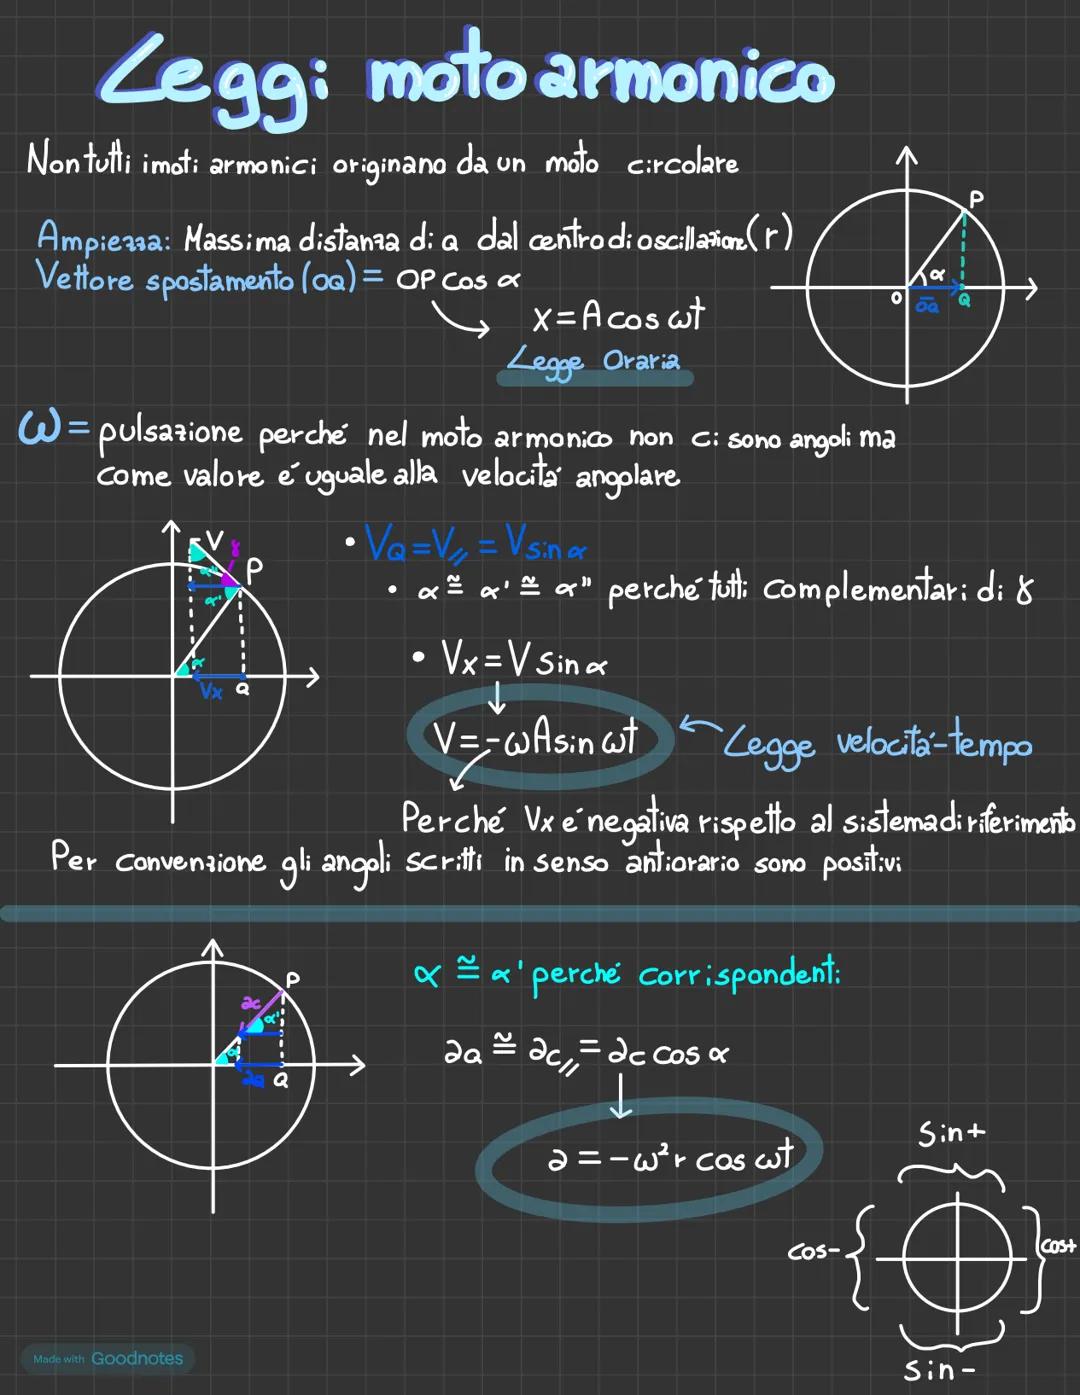 Leggi moto armonico
Non tutti i moti armonici originano da un moto circolare
Ampiezza: Massima distanza di a dal centro di oscillazione (r)
Vettore spostamento (OQ) = OP cos α
x = A cos ωt
Legge Oraria
P
α
O
OQ
Q
ω = pulsazione perché nel moto armonico non ci sono angoli ma
come valore é uguale alla velocitá angolare
V
γ
P
α"
α'
α
Vx
Q
• VQ = V// = V sin α
• α ≅ α' ≅ α" perché tutti complementari di γ
• Vx = V sin α
V = -ωA sin ωt
Legge velocitá-tempo
Perché Vx é negativa rispetto al sistema di riferimento
Per convenzione gli angoli scritti in senso antiorario sono positivi
P
ac
α'
α
aQ
Q
α ≅ α' perché corrispondenti
aQ ≅ ac// = ac cos α
a = -ω²r cos ωt
Sin+
cos-
cos+
Sin-
Made with Goodnotes